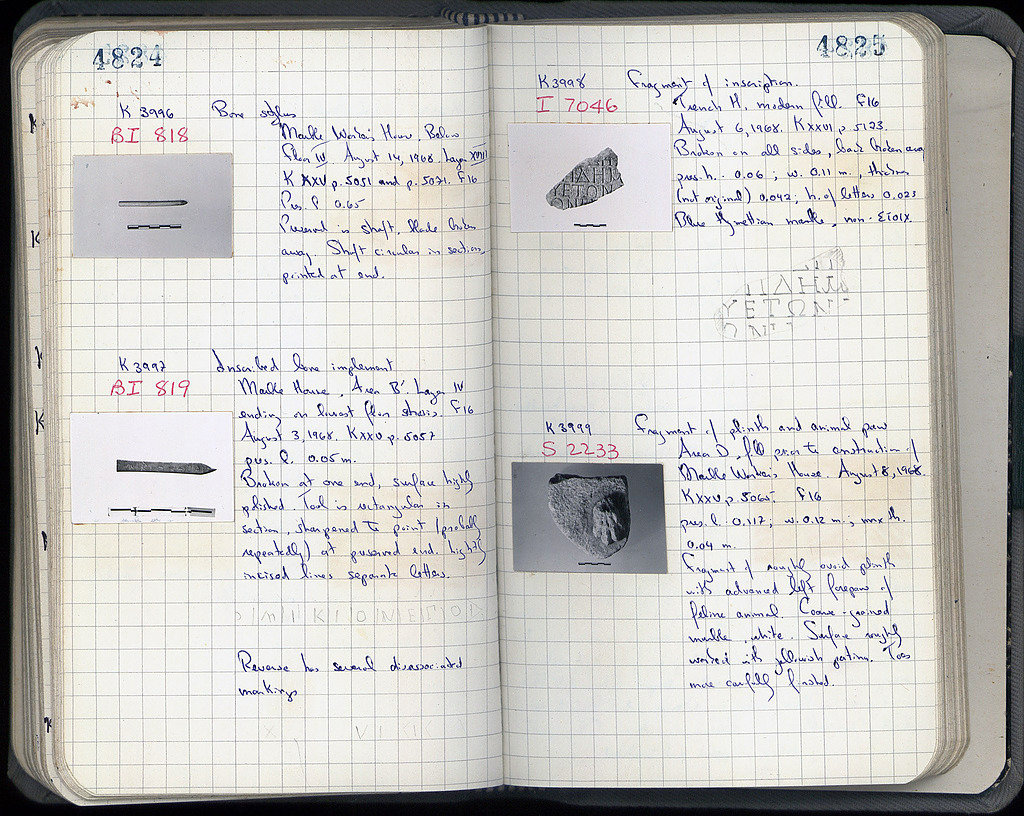 4824
K 3996 Bone stylus
BI 818
Marble Worker's House. Below
floor IV August 14, 1968. Layer XVIII
K XXV p. 5051 and p. 5071. F16
Pres. l. 0.65
Preserved is shaft, blade broken
away. Shaft circular in section,
pointed at end.
K 3997 Inscribed bone implement
BI 819
Marble House, Area B'. Layer IV
ending on lowest floor F16
August 3, 1968. K XXV p. 5057
pres. l. 0.05 m.
Broken at one end, surface highly
polished. Tool is rectangular in
section, sharpened to point (probably
repeatedly) at preserved end. lightly
incised lines separate letters.
Reverse has several disassociated
markings
4825
K 3998 Fragment of inscription.
I 7046
Trench H, modern fill. F16
August 6, 1968. K XXVI p. 5123.
Broken on all sides, back broken away
pres. h. 0.06; w. 0.11 m., thickness
(not original) 0.042; h. of letters 0.023
Blue Hymettian marble, non-ΣΤΟΙΧ.
ΙΛΗ
ΕΤΩΝ
K 3999 Fragment of plinth and animal paw
S 2233
Area D, fill prior to construction of
Marble Worker's House. August 8, 1968.
K XXV p. F16
pres. l. 0.117; w. 0.12 m.; max th.
0.04 m.
Fragment of roughly ovoid plinth
with advanced left forepaw of
feline animal. Coarse-grained
marble, white. Surface roughly
worked with yellowish patina. Toes
more carefully finished.